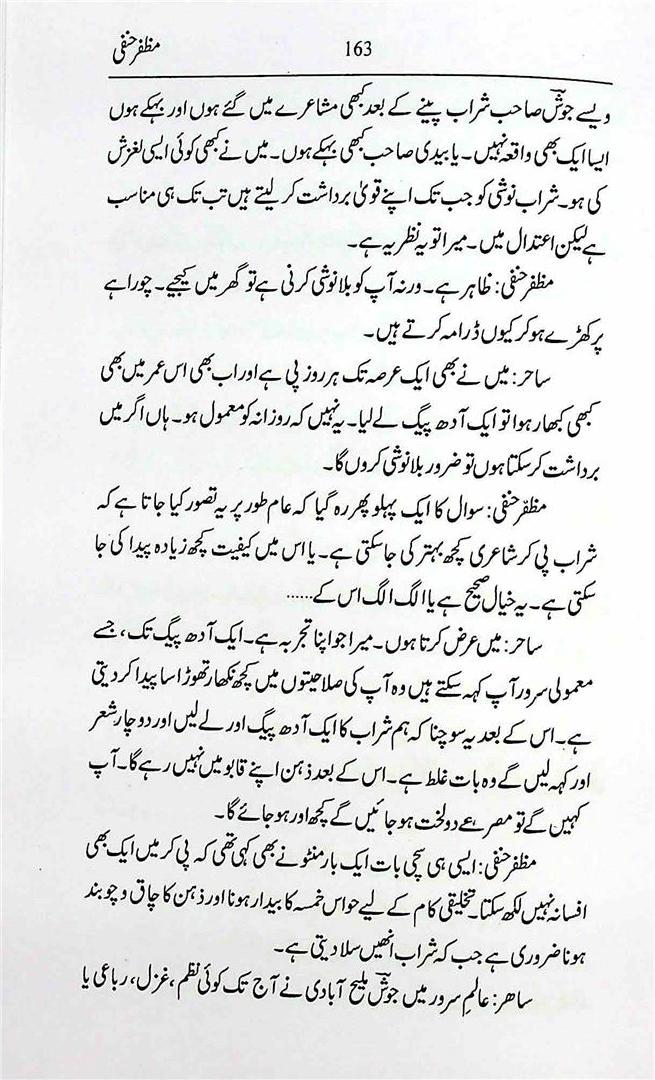 مظفر حنفی 163
ویسے جوشؔ صاحب شراب پینے کے بعد کبھی مشاعرے میں گئے ہوں اور بہکے ہوں
ایسا ایک بھی واقعہ نہیں۔ یا بیدی صاحب کبھی بہکے ہوں۔ میں نے کبھی کوئی ایسی لغزش
کی ہو۔ شراب نوشی کو جب تک اپنے قویٰ برداشت کر لیتے ہیں تب تک ہی مناسب
ہے لیکن اعتدال میں۔ میرا تو یہ نظریہ ہے۔
مظفر حنفی: ظاہر ہے۔ ورنہ آپ کو بلانوشی کرنی ہے تو گھر میں کیجیے۔ چوراہے
پر کھڑے ہوکر کیوں ڈرامہ کرتے ہیں۔
ساحر: میں نے بھی ایک عرصہ تک ہر روز پی ہے اور اب بھی اس عمر میں بھی
کبھی کبھار ہوا تو ایک آدھ پیگ لے لیا۔ یہ نہیں کہ روزانہ کو معمول ہو۔ ہاں اگر میں
برداشت کر سکتا ہوں تو ضرور بلانوشی کروں گا۔
مظفر حنفی: سوال کا ایک پہلو پھر رہ گیا کہ عام طور پر یہ تصور کیا جاتا ہے کہ
شراب پی کر شاعری کچھ بہتر کی جاسکتی ہے۔ یا اس میں کیفیت کچھ زیادہ پیدا کی جا
سکتی ہے۔ یہ خیال صحیح ہے یا الگ الگ اس کے......
ساحر: میں عرض کرتا ہوں۔ میرا جو اپنا تجربہ ہے۔ ایک آدھ پیگ تک، جسے
معمولی سرور آپ کہہ سکتے ہیں وہ آپ کی صلاحیتوں میں کچھ نکھار تھوڑا سا پیدا کر دیتی
ہے۔ اس کے بعد یہ سوچنا کہ ہم شراب کا ایک آدھ پیگ اور لے لیں اور دو چار شعر
اور کہہ لیں گے وہ بات غلط ہے۔ اس کے بعد ذہن اپنے قابو میں نہیں رہے گا۔ آپ
کہیں گے تو مصرعے دولخت ہو جائیں گے کچھ اور ہو جائے گا۔
مظفر حنفی: ایسی ہی سچی بات ایک بار منٹو نے بھی کہی تھی کہ پی کر میں ایک بھی
افسانہ نہیں لکھ سکتا۔ تخلیقی کام کے لیے حواس خمسہ کا بیدار ہونا اور ذہن کا چاق و چوبند
ہونا ضروری ہے جب کہ شراب انھیں سلا دیتی ہے۔
ساھر: عالمِ سرور میں جوشؔ ملیح آبادی نے آج تک کوئی نظم، غزل، رباعی یا